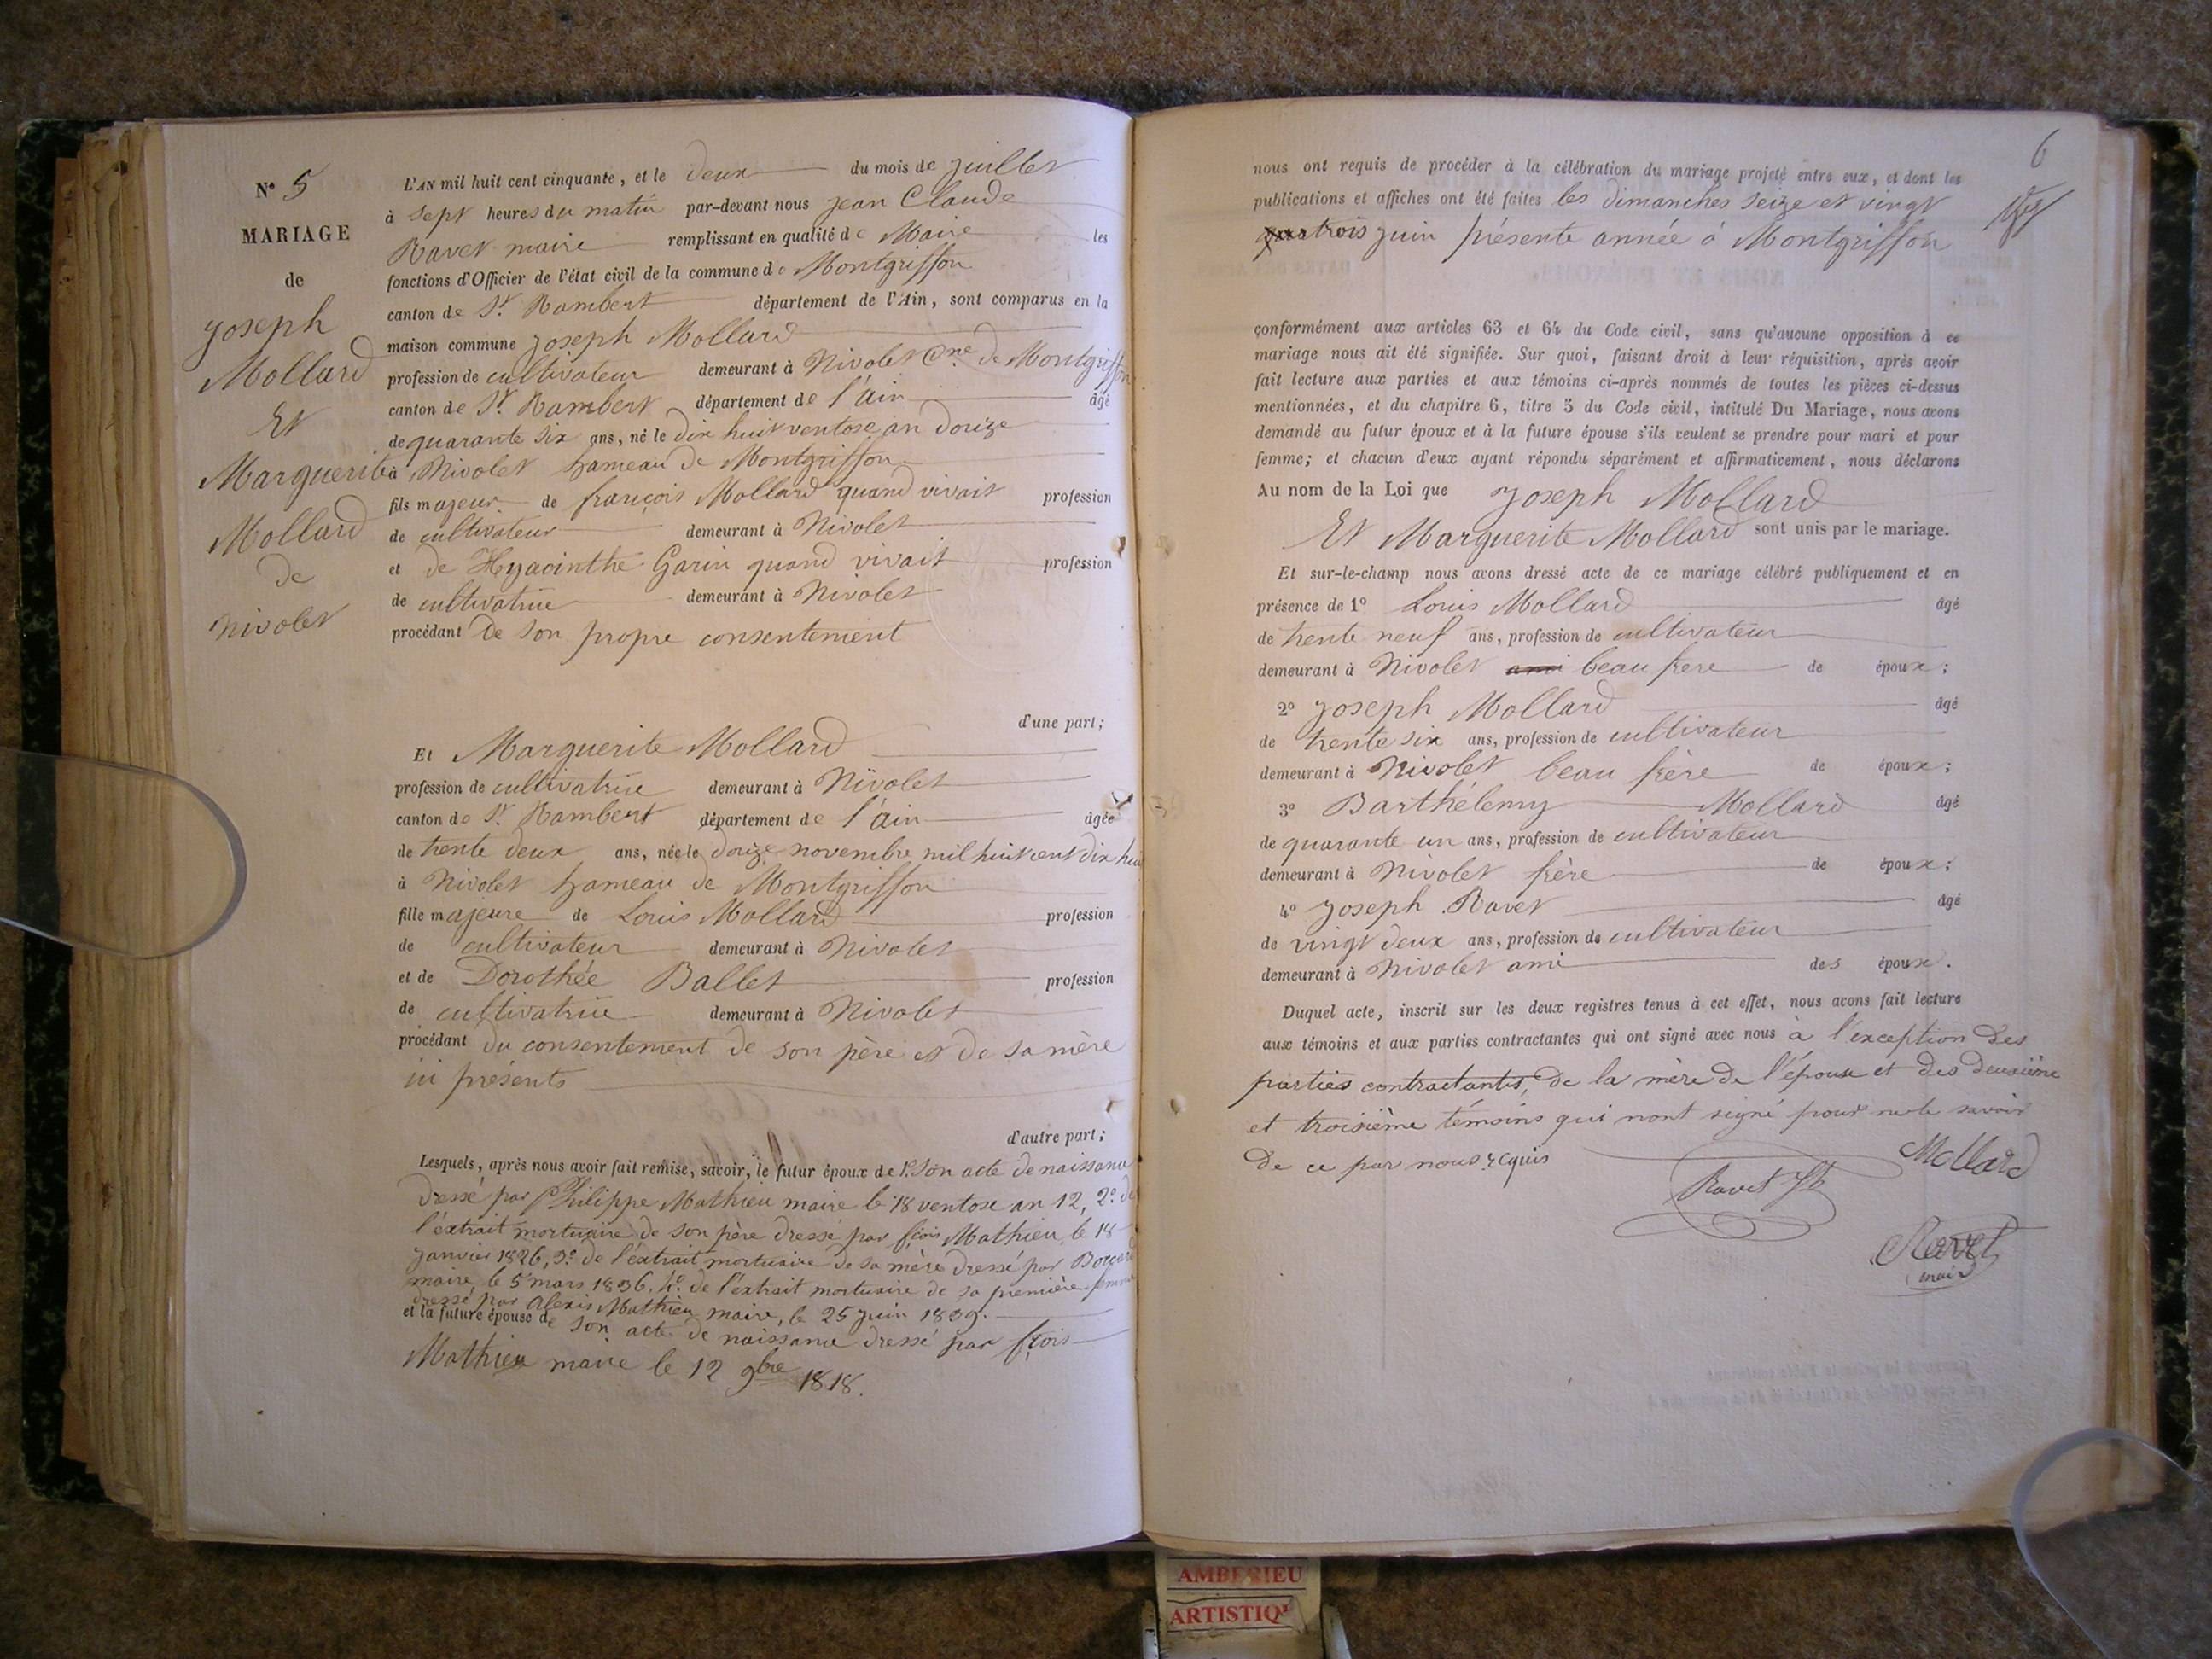 N° 5
MARIAGE
de
Joseph
Mollard
Et
Marguerite
Mollard
de
Nivolet
L'AN mil huit cent cinquante, et le deux du mois de juillet
à sept heures du matin par-devant nous jean Claude
Ravet maire remplissant en qualité de Maire les
fonctions d'Officier de l'état civil de la commune de Montgriffon
canton de St Rambert département de l'Ain, sont comparus en la
maison commune joseph Mollard
profession de cultivateur demeurant à Nivolet Cne de Montgriffon
canton de St Rambert département de l'ain âgé
de quarante six ans, né le dix huit ventose an douze
à Nivolet hameau de Montgriffon
fils majeur de françois Mollard quand vivait profession
de cultivateur demeurant à Nivolet
et de Hyacinthe Garin quand vivait profession
de cultivatrice demeurant à Nivolet
procédant de son propre consentement
d'une part;
Et Marguerite Mollard
profession de cultivatrice demeurant à Nivolet
canton de St Rambert département de l'ain âgée
de trente deux ans, née le douze novembre mil huit cent dix huit
à Nivolet hameau de Montgriffon
fille majeure de Louis Mollard profession
de cultivateur demeurant à Nivolet
et de Dorothée Ballet profession
de cultivatrice demeurant à Nivolet
procédant du consentement de son père et de sa mère
ici présents
d'autre part;
Lesquels, après nous avoir fait remise, savoir, le futur époux de 1° Son acte de naissance
dressé par Philippe Mathieu maire le 18 ventose an 12, 2° de
l'éxtrait mortuaire de son père dressé par fçois Mathieu, le 18
janvier 1826, 3° de l'éxtrait mortuaire de sa mère dressé par
maire, le 5 mars 1836, 4° de l'éxtrait mortuaire de sa première femme
dressé par Alexis Mathieu maire, le 25 juin 1839.
et la future épouse de son acte de naissance dressé par fçois
Mathieu maire le 12 9bre 1818.
6
nous ont requis de procéder à la célébration du mariage projeté entre eux, et dont les
publications et affiches ont été faites les dimanches seize et vingt
trois juin présente année à Montgriffon
conformément aux articles 63 et 64 du Code civil, sans qu'aucune opposition à ce
mariage nous ait été signifiée. Sur quoi, faisant droit à leur réquisition, après avoir
fait lecture aux parties et aux témoins ci-après nommés de toutes les pièces ci-dessus
mentionnées, et du chapitre 6, titre 5 du Code civil, intitulé Du Mariage, nous avons
demandé au futur époux et à la future épouse s'ils veulent se prendre pour mari et pour
femme; et chacun d'eux ayant répondu séparément et affirmativement, nous déclarons
Au nom de la Loi que Joseph Mollard
Et Marguerite Mollard sont unis par le mariage.
Et sur-le-champ nous avons dressé acte de ce mariage célébré publiquement et en
présence de 1° Louis Mollard âgé
de trente neuf ans, profession de cultivateur
demeurant à Nivolet ami beau frere de époux;
2° Joseph Mollard âgé
de trente six ans, profession de cultivateur
demeurant à Nivolet beau frère de époux;
3° Barthélemy Mollard âgé
de quarante un ans, profession de cultivateur
demeurant à Nivolet frère de époux;
4° Joseph Ravet âgé
de vingt deux ans, profession de cultivateur
demeurant à Nivolet ami des époux.
Duquel acte, inscrit sur les deux registres tenus à cet effet, nous avons fait lecture
aux témoins et aux parties contractantes qui ont signé avec nous à l'éxception des
parties contractantes, de la mère de l'épouse et des deuxième
et troisième témoins qui n'ont signé pour ne le savoir
de ce par nous requis
Mollard
Ravet
Ravet
maire
AMBERIEU
ARTISTIQ